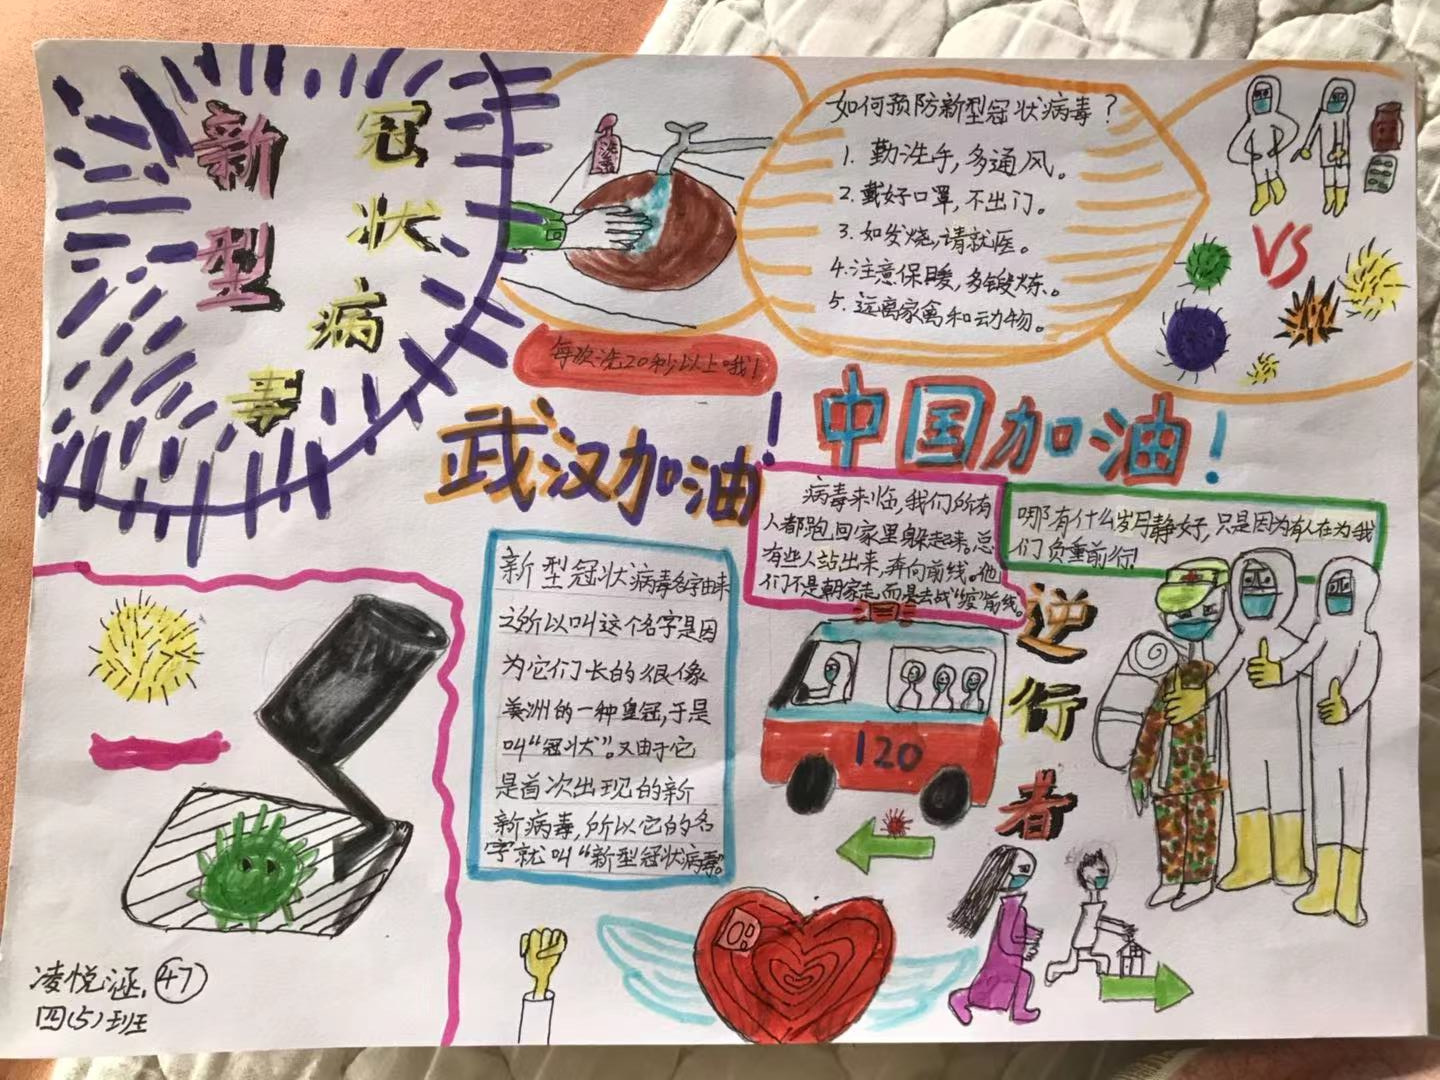 新型
冠状病毒
洗手液
每次洗20秒以上哦！
如何预防新型冠状病毒？
1. 勤洗手，多通风。
2. 戴好口罩，不出门。
3. 如发烧，请就医。
4. 注意保暖，多锻炼。
5. 远离家禽和动物。
VS
武汉加油！
中国加油！
病毒来临，我们所有
人都跑回家里躲起来。总
有些人站出来，奔向前线。他
们不是朝家走，而是去战“疫”前线。
哪有什么岁月静好，只是因为有人在为我
们负重前行！
逆行者
新型冠状病毒名字由来
之所以叫这个名字是因
为它们长的很像
美洲的一种皇冠，于是
叫“冠状”。又由于它
是首次出现的新
新病毒，所以它的名
字就叫“新型冠状病毒”。
120
凌悦涵，47
四(5)班